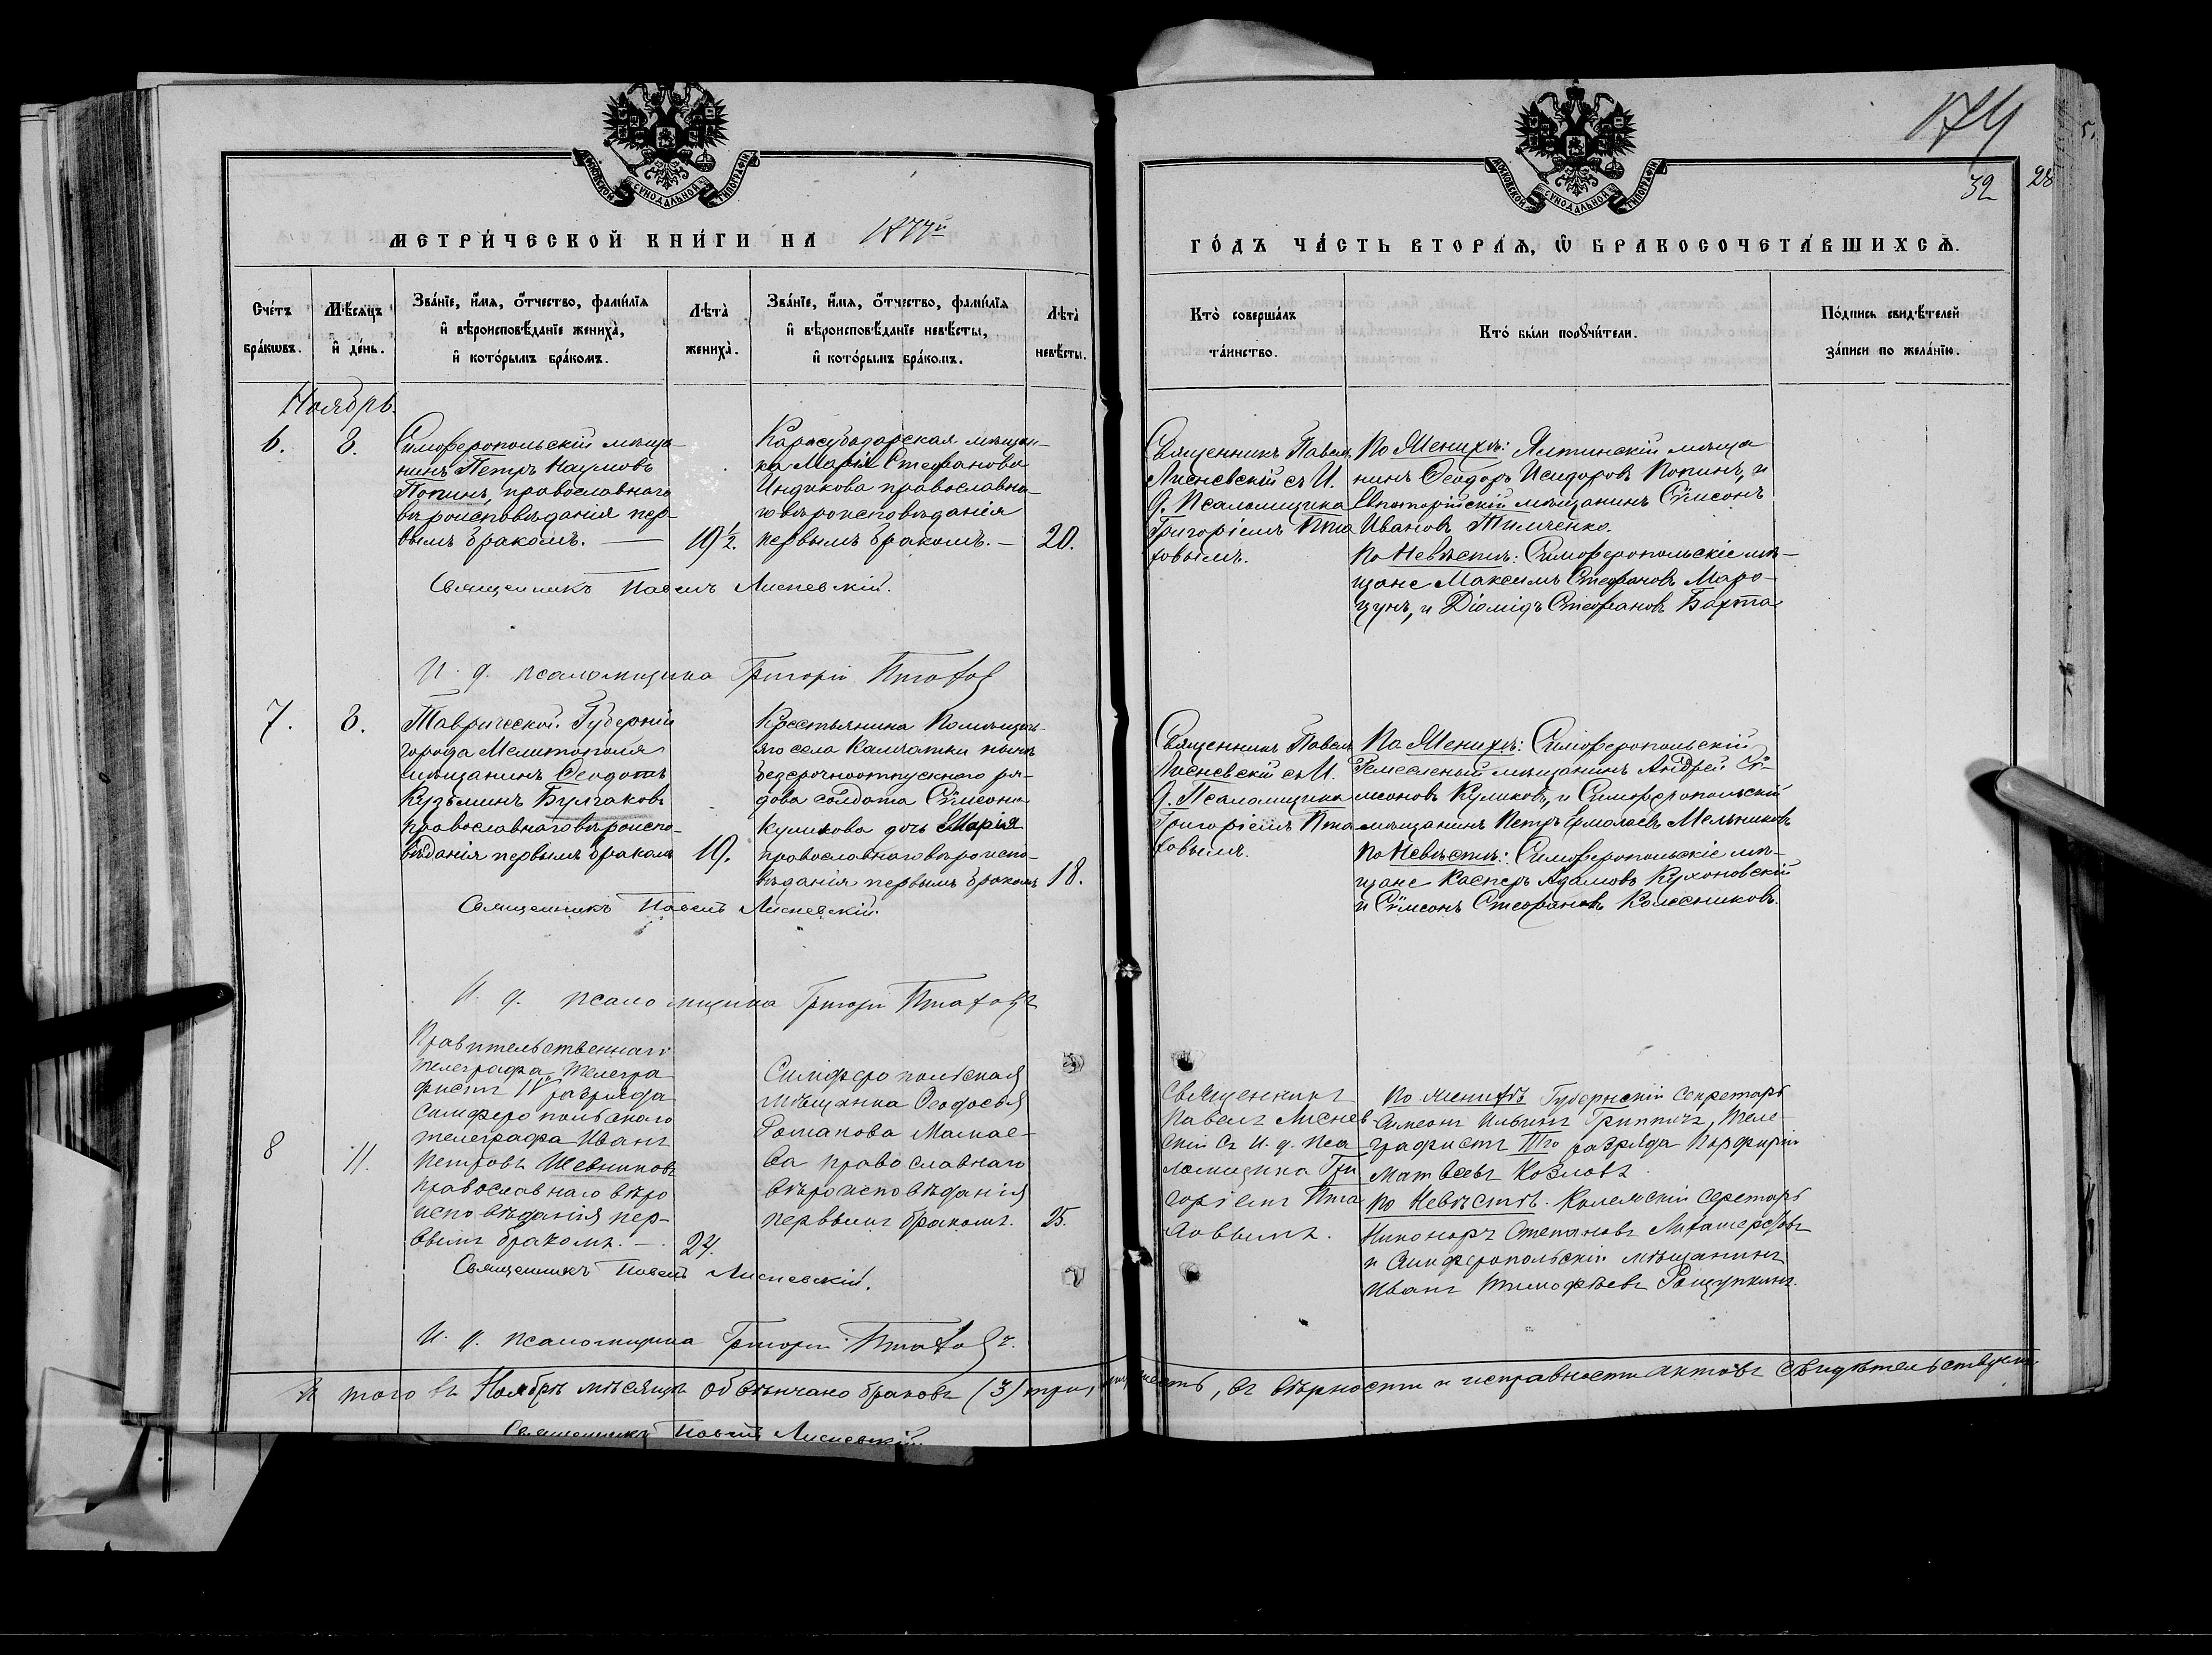 174
32
28
МОСКОВСКОЙ СѴНОДАЛЬНОЙ ТИПОГРАФІИ
МОСКОВСКОЙ СѴНОДАЛЬНОЙ ТИПОГРАФІИ
МЕТРИ́ЧЕСКОЙ КНИ́ГИ НА 1877й
ГО́ДЪ ЧА́СТЬ ВТОРА́Ѧ, Ѿ БРАКОСОЧЕТА́ВШИХСѦ.
Сче́тъ
бра́кѡвъ.
Мѣ́сѧцъ
и҆ де́нь.
Зва́нїе, и҆́мѧ, ѻ҆́тчество, фами́лїѧ
и҆ вѣроисповѣ́данїе жениха̀,
и҆ кото́рымъ бра́комъ.
Лѣ́та̀
жениха̀.
Зва́нїе, и҆́мѧ, ѻ҆́тчество, фами́лїѧ
и҆ вѣроисповѣ́данїе невѣ́сты,
и҆ кото́рымъ бра́комъ.
Лѣ́та̀
невѣ́сты.
Кто̀ соверша́лъ
та́инство.
Кто̀ бы́ли порꙋчи́тели.
По́дпись свидѣ́телей
за́писи по жела́нїю.
Ноябрь.
6.
8.
Симферопольскій мѣща-
нинъ Петръ Наумовъ
Попинъ, православнаго
вѣроисповѣданія пер-
вымъ бракомъ. —
19½.
Карасубазарская мѣщан-
ка Марія Стефанова
Индикова православна-
го вѣроисповѣданія
первымъ бракомъ. —
20.
Священникъ Павелъ
Лисневскій съ И.
д. Псаломщика
Григоріемъ Пта
ховымъ.
По Женихѣ: Ялтинскій мѣща
нинъ Ѳеодоръ Исидоровъ Попинъ, и
Евпаторійскій мѣщанинъ Сѵмеонъ
Ивановъ Тимченко.
По Невѣстѣ: Симферопольскіе мѣ-
щане Максимъ Стефановъ Маро-
цунъ, и Діомидъ Стефановъ Бахта
Священникъ Павелъ Лисневскій.
И. д. псаломщика Григорій Птахов
7.
8.
Таврической Губерніи
города Мелитополя
мѣщанинъ Ѳеодотъ
Кузьминъ Булгаковъ
православнаго вѣроиспо-
вѣданія первымъ бракомъ
19.
Крестьянина
села Камчатки нынѣ
безсрочноотпускнаго ря-
дова солдата Сѵмеона
Куликова дочь Марія
православнаго вѣроиспо-
вѣданія первымъ бракомъ
18.
Священникъ Павелъ
Лисневскій съ И.
д. Псаломщика
Григоріемъ Пта
ховымъ.
По Женихѣ: Симферопольскій
Ремесленый мѣщанинъ Андрей Сѵ-
меоновъ Куликовъ, и Симферопольскій
мѣщанинъ Петръ Ермолаевъ Мельниковъ
По Невѣстѣ: Симферопольскіе мѣ-
щане Касперъ Адамовъ Кухоновскій
и Сѵмеонъ Стефановъ Колесниковъ.
Священникъ Павелъ Лисневскій.
И. д. псаломщика Григорій Птаховъ
8
11.
Правительственнаго
телеграфа телегра-
фистъ разряда
Симферопольскаго
телеграфа Иванъ
Петровъ Шевниковъ
православнаго вѣро
исповѣданія пер-
вымъ бракомъ. —
24.
Симферопольская
мѣщанка Ѳеодосья
Романова Мамае-
ва православнаго
вѣроисповѣданія
первымъ бракомъ.
25.
Священникъ
Павелъ Лиснев
скій съ И. д. Пса
ломщика Гри
горіемъ Пта
ховымъ.
По женихѣ Губернскій Секретарь
Симеонъ Ильинъ, теле-
графистъ IIIго разряда Порфирій
Матвеевъ Козловъ.
По Невѣстѣ. Колежскій Серетарь
Никоноръ Степановъ
и Симферопольскій мѣщанинъ
Иванъ Тимофѣевъ Рощупкинъ.
Священникъ Павелъ Лисневскій.
И. д. псаломщика Григорій Птаховъ.
И того въ Ноябрѣ мѣсяцѣ обвѣнчано браковъ (3) три, въ вѣрности и исправности актовъ свидѣтельствуемъ
Священникъ Павелъ Лисневскій